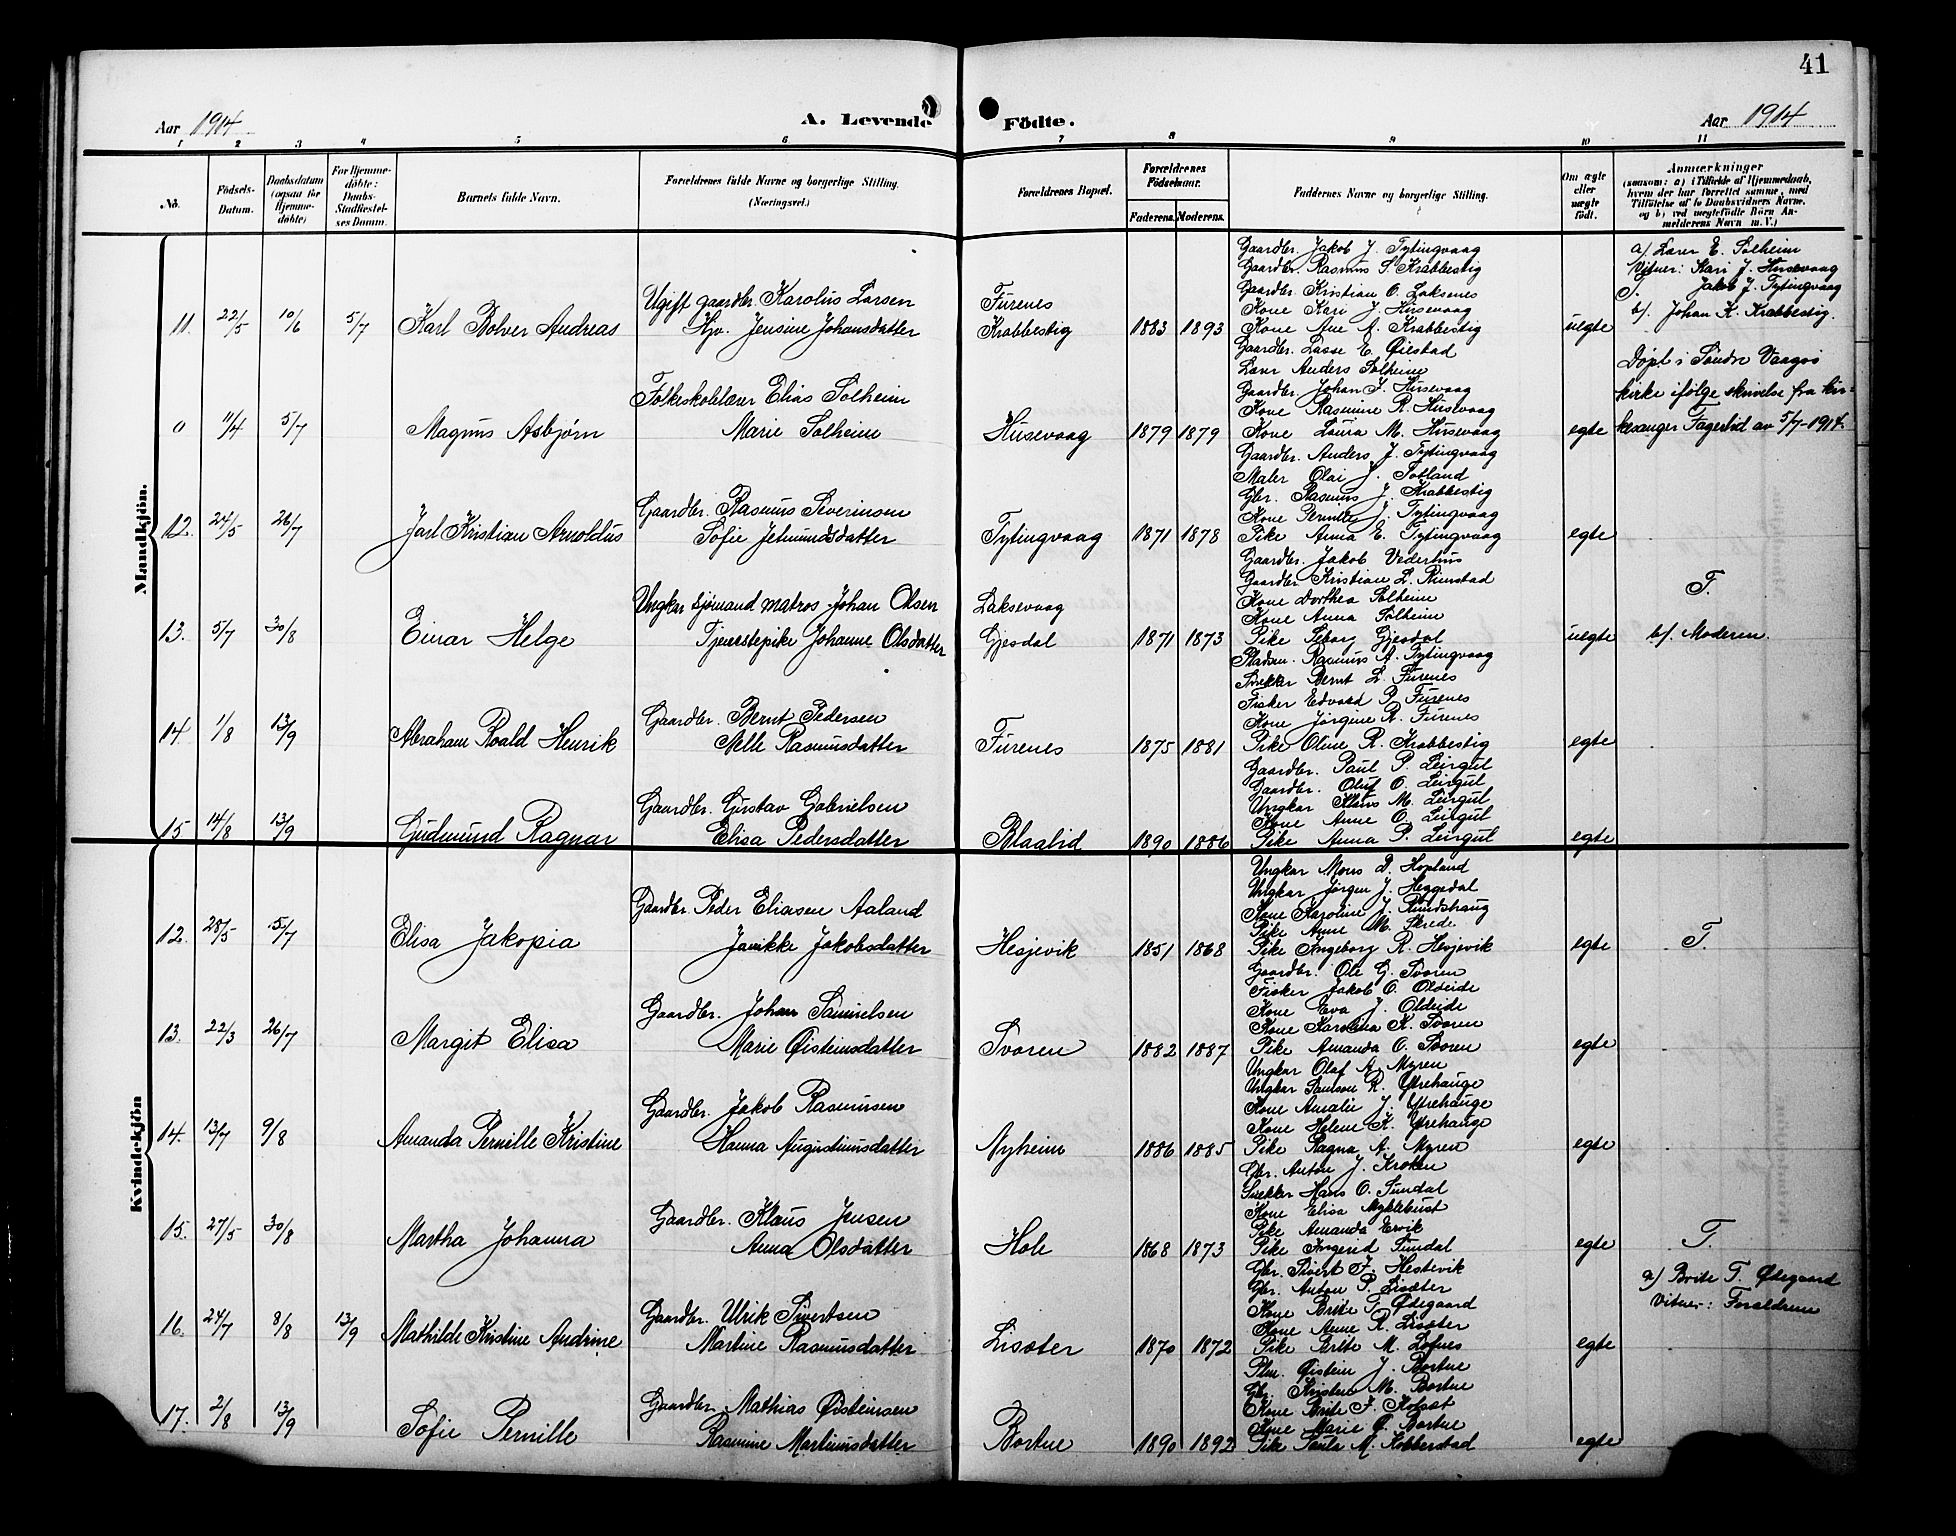 41
Aar 1914
A. Levende Födte.
Aar 1914
1 2 3 4 5 6 7 8 9 10 11
No.
Födsels-Datum.
Daabsdatum (ogsaa for Hjemme-döbte)
For Hjemme-döbte: Daabs-Stadfæstel-ses Datum.
Barnets fulde Navn.
Forældrenes fulde Navne og borgerlige Stilling.
(Næringsvei.)
Forældrenes Bopæl.
Forældrenes Födselsaar.
Faderens. Moderens.
Faddernes Navne og borgerlige Stilling.
Om ægte eller uægte födt.
Anmærkninger
(saasom: a) i Tilfælde af Hjemmedaab,
hvem der har forrettet samme, med
Tilföielse af to Daabsvidners Navne,
og b) ved uægtefödte Börn An-
melderens Navn m. V.)
Mandkjön.
11. 22/5 10/6 5/7 Karl Bolver Andreas
Ugift gaardbr. Karolus Larsen
Hjv. Jensine Johansdatter
Furenes
Krabbestig
1883 1893
Gaardbr. Jakob J. Tytingvaag
Gaardbr. Rasmus S. Krabbestig
Gaardbr. Kristian O. Laksenes
Kone Kari J. Husevaag
Kone Ane A. Krabbestig
uegte
a/ Lærer E. Solheim
Vitner: Kari J. Husevaag
T. Jakob J. Tytingvaag
b/. Johan K. Krabbestig.
0 11/4 5/7 Magnus Asbjørn
Folkeskolelærer Elias Solheim
Marie Solheim
Husevaag
1879 1879
Gaardbr. Lasse E. Øilstad
Lærer Anders Solheim
Gaardbr. Johan J. Husevaag
Kone Rasmine R. Husevaag
Kone Laura M. Husevaag
egte
Døpt i Søndre Vaagsø
kirke ifølge skrivelse fra kir-
kesanger Fagerlid av 5/7-1914.
12. 24/5 26/7 Jarl Kristian Arnoldus
Gaardbr. Rasmus Severinsen
Sofie Jetmundsdatter
Tytingvaag
1871 1878
Gaardbr. Anders J. Tytingvaag
Maler Olai J. Totland
Gbr. Rasmus J. Krabbestig
Kone Pernille J. Tytingvaag
Pike Anna E. Tytingvaag
egte
13. 5/7 30/8 Einar Helge
Ungkar sjømand matros Johan Olsen
Tjenestepike Johanne Olsdatter
Laksevaag
Gjesdal
1871 1873
Gaardbr. Jakob Vederhus
Gaardbr. Kristian L. Rimstad
Kone Dorthea Solheim
Kone Anna Solheim
Pike Seborg Gjesdal
uegte
T.
b/. Moderen.
14. 1/8 13/9 Abraham Roald Henrik
Gaardbr. Bernt Pedersen
Nelle Rasmusdatter
Furenes
1875 1881
Rasmus A. Tytingvaag
Snekker Bernt L. Furenes
Fisker Edvard P. Furenes
Kone Jørgine R. Furenes
Pike Oline R. Krabbestig
egte
15. 14/8 13/9 Gudmund Ragnar
Gaardbr. Gustav Gabrielsen
Elisa Pedersdatter
Blaalid
1890 1886
Gaardbr. Paul P. Leirgul
Gaardbr. Oluf O. Leirgul
Ungkar Klaus M. Leirgul
Kone Anne O. Leirgul
Pike Anna P. Leirgul
egte
Kvindekjön
12. 28/5 5/7 Elisa Jakopia
Gaardbr. Peder Eliasen Aaland
Janikke Jakobsdatter
Hesjevik
1851 1868
Ungkar Mons D. Hopland
Ungkar Jørgen J. Heggedal
Kone Karoline J. Rundshaug
Pike Anne M. Skrede
Pike Ingeborg R. Hesjevik
egte
T.
13. 22/3 26/7 Margit Elisa
Gaardbr. Johan Samuelsen
Marie Øisteinsdatter
Svoren
1882 1887
Gaardbr. Ole G. Svoren
Fisker Jakob O. Oldeide
Kone Eva J. Oldeide
Kone Karolina K. Svoren
Pike Amanda O. Svoren
egte
14. 13/7 9/8 Amanda Pernille Kristine
Gaardbr. Jakob Rasmusen
Hanna Augustinusdatter
Nyheim
1886 1885
Ungkar Olaf A. Myren
Ungkar Samson R. Ytrehauge
Kone Amalie J. Ytrehauge
Kone Helene K. Ytrehauge
Pike Ragna A. Myren
egte
15. 27/5 30/8 Martha Johanna
Gaardbr. Klaus Jensen
Anna Olsdatter
Hole
1868 1873
Gbr. Anton J. Kroken
Snekker Hans O. Sundal
Kone Elisa Myklebust
Pike Amanda Ervik
Pike Ingerid Sundal
egte
T.
16. 24/7 8/8 13/9 Mathilde Kristine Andrine
Gaardbr. Ulrik Sivertsen
Martine Rasmusdatter
Lisæter
1870 1872
Gbr. Sivert F. Hestevik
Gbr. Anton P. Lisæter
Kone Brite T. Ødegaard
Kone Anne R. Lisæter
Pike Brite M. Lofnes
egte
a/ Brite T. Ødegaard
Vitner: Forældrene
17. 2/8 13/9 Sofie Pernille
Gaardbr. Mathias Øisteinsen
Rasmine Martinusdatter
Bortne
1890 1892
Plm. Øistein J. Bortne
Gbr. Kristen M. Bortne
Kone Brite J. Kolset
Kone Marie O. Bortne
Pike Paula M. Kobberstad
egte